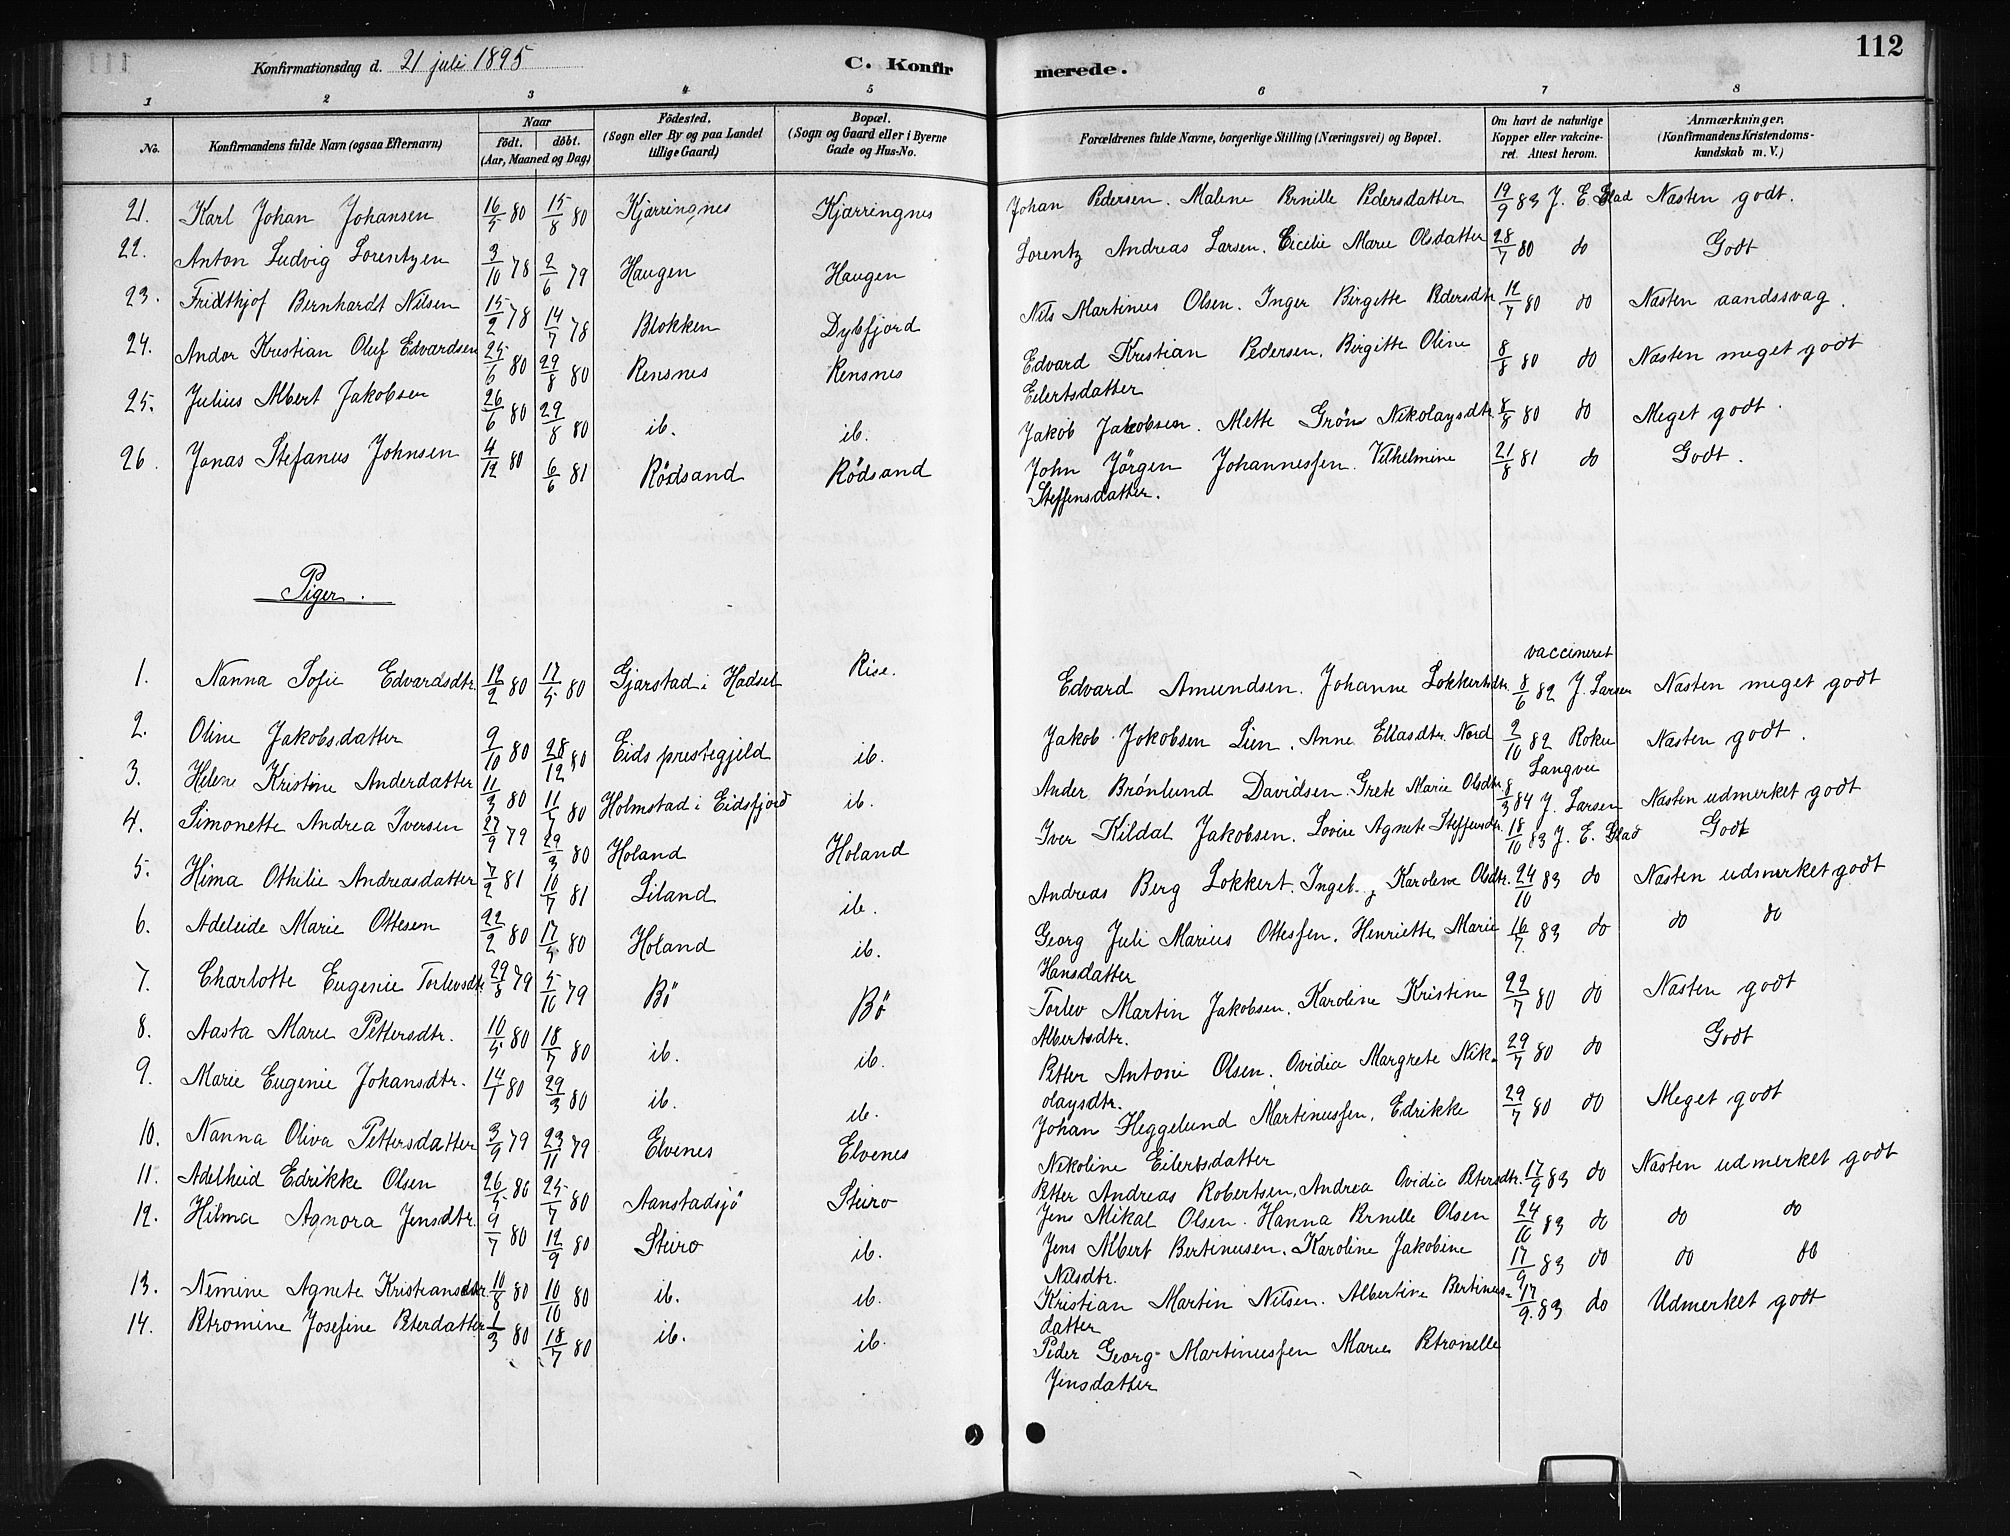 112
Konfirmationsdag d. 21 juli 1895 C. Konfirmerede.
1 2 3 4 5 6 7 8
No. Konfirmandens fulde Navn (ogsaa Efternavn) Naar født. døbt. (Aar, Maaned og Dag) Fødested. (Sogn eller By og paa Landet tillige Gaard) Bopæl. (Sogn og Gaard eller i Byerne Gade og Hus-No. Forældrenes fulde Navne, borgerlige Stilling (Næringsvei) og Bopæl. Om havt de naturlige Kopper eller vakcineret. Attest herom. Anmærkninger. (Konfirmandens Kristendomskundskab m. V.)
21. Karl Johan Johansen 16/5 80 15/8 80 Kjærringnes Kjærringnes Johan Pedersen. Malene Pernille Pedersdatter 19/9 83 J. E. Glad Næsten godt.
22. Anton Ludvig Lorentzen 3/10 78 2/6 79 Haugen Haugen Lorentz Andreas Larsen. Cicilie Marie Olsdatter 28/7 80 do Godt
23. Fridthjof Bernhardt Nilsen 15/2 78 14/7 78 Blokken Dybfjord Nils Martinus Olsen. Inger Birgette Pedersdtr. 12/7 80 do Næsten aandssvag.
24. Andor Kristian Oluf Edvardsen 25/6 80 29/8 80 Rensnes Rensnes Edvard Kristian Pedersen. Birgitte Oline 8/8 80 do Næsten meget godt
Eilertsdatter
25. Julius Albert Jakobsen 26/6 80 29/8 80 ib. ib. Jakob Jakobsen. Mette Grøn Nikolaysdtr. 8/8 80 do Meget godt.
26. Jonas Stefanus Johnsen 4/12 80 6/6 81 Rödsand Rödsand John Jörgen Johannessen. Vilhelmine 21/8 81 do Godt.
Steffensdatter.
Piger.
vaccineret
1. Nanna Sofie Edvardsdtr. 12/2 80 17/5 80 Gjærstad i Hadsel Rise. Edvard Amundsen. Johanne Lokkertsdtr. 8/6 82 J. Larsen Næsten meget godt
2. Oline Jakobsdatter 9/10 80 28/12 80 Eids prestegjeld ib. Jakob Jokobsen Lien. Anne Eliasdtr. Nord 2/10 82 Næsten godt.
Langvei
3. Helene Kristine Anderdatter 11/3 80 11/7 80 Holmstad i Eidsfjord ib. Ander Brønlund Davidsen. Grete Marie Olsdtr. 8/3 84 J. Larsen Næsten udmerket godt
4. Simonette Andrea Iversen 27/9 79 29/3 80 Holand Holand Iver Kildal Jakobsen. Lovise Agnete Steffensdtr. 18/10 83 J. E. Glad Godt
5. Hima Othilie Andreasdatter 7/2 81 10/7 81 Liland ib. Andreas Berg Lokkert. Ingeb. Karoline Olsdtr. 24/10 83 do Næsten udmerket godt
6. Adeleide Marie Ottesen 22/2 80 17/5 80 Holand ib. Georg Juli Marius Ottessen. Henriette Marie 16/7 83 do do do
Hansdatter
7. Charlotte Eugenie Torlevsdtr 29/8 79 5/10 79 Bö Bö Torlev Martin Jakobsen. Karoline Kristine 22/7 80 do Næsten godt
Albertsdtr.
8. Aasta Marie Pettersdtr. 10/5 80 18/7 80 ib. ib. Petter Antoni Olsen. Ovidia Margrete Nik- 29/7 80 do Godt
olaysdtr.
9. Marie Eugenie Johansdtr. 14/1 80 29/3 80 ib. ib. Johan Heggelund Martinussen. Edrikke 29/7 80 do Meget godt
Nikoline Eilertsdatter
10. Nanna Oliva Pettersdatter 3/9 79 23/11 79 Elvenes Elvenes Petter Andreas Robertsen, Andrea Ovidia Petersdtr. 17/9 83 do Næsten udmerket godt
11. Adelheid Edrikke Olsen 26/5 80 25/7 80 Aanstadsjö Steiro Jens Mikal Olsen. Hanna Pernille Olsen 24/10 83 do do do
12. Hilma Agnora Jensdtr. 9/7 80 12/9 80 Steiro ib. Jens Albert Bertinusen. Karoline Jakobine 17/9 83 do do do
Nilsdtr.
13. Nemine Agnete Kristiansdtr. 10/8 80 10/10 80 ib. ib. Kristian Martin Nilsen. Albertine Bertinus- 17/9. 83 do Udmerket godt
datter
14. Petromine Josefine Peterdatter 1/3 80 18/7 80 ib. ib. Peder Georg Martinussen Marie Petronelle
Jensdatter